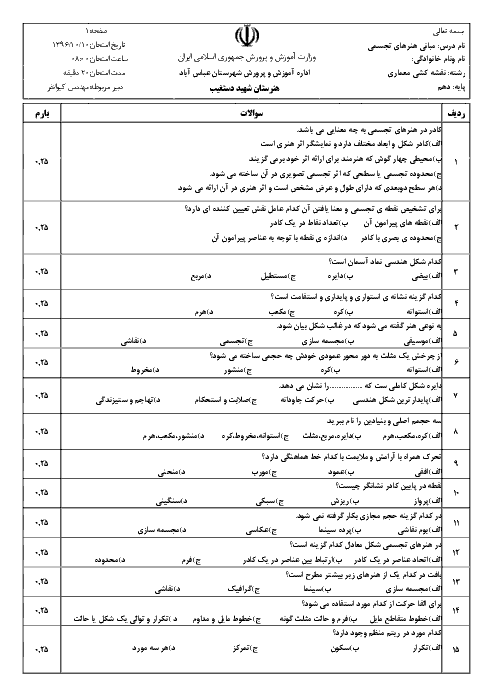 بسمه تعالی
نام درس: مبانی هنرهای تجسمی
نام ونام خانوادگی:
رشته: نقشه کشی معماری
پایه: دهم
وزارت آموزش و پرورش جمهوری اسلامی ایران
اداره آموزش و پرورش شهرستان عباس آباد
هنرستان شهید دستغیب
صفحه:۱
تاریخ امتحان:۱۳۹۶/۱۰/۱۰
ساعت امتحان: ۰۸:۰۰
مدت امتحان: ۲۰ دقیقه
دبیر مربوطه:مهندس کیوانفر
ردیف سوالات بارم
۱ کادر در هنرهای تجسمی به چه معنایی می باشد. ۰,۲۵
الف)کادر شکل و ابعاد مختلف دارد و نمایشگر اثر هنری است
ب)محیطی چهار گوش که هنرمند برای ارائه اثر خود برمی گزیند
ج)محدوده تجسمی یا سطحی که اثر تجسمی تصویری در آن ساخته می شود.
د)هر سطح دوبعدی که دارای طول و عرض مشخص است و اثر هنری در آن ارائه می شود
۲ برای تشخیص نقطه ی تجسمی و معنا یافتن آن کدام عامل نقش تعیین کننده ای دارد؟ ۰,۲۵
الف)نقطه های پیرامون آن ب)تعداد نقاط در یک کادر
ج)محدوده ی بصری یا کادر د)اندازه ی نقطه با توجه به عناصر پیرامون آن
۳ کدام شکل هندسی نماد آسمان است؟ ۰,۲۵
الف)بیضی ب)دایره ج)مستطیل د)مربع
۴ کدام گزینه نشانه ی استواری و پایداری و استقامت است؟ ۰,۲۵
الف)استوانه ب)کره ج)مکعب د)هرم
۵ به نوعی هنر گفته می شود که در غالب شکل بیان شود. ۰,۲۵
الف)موسیقی ب)مجسمه سازی ج)تجسمی د)نقاشی
۶ از چرخش یک مثلث به دور محور عمودی خودش چه حجمی ساخته می شود؟ ۰,۲۵
الف)استوانه ب)کره ج)منشور د)مخروط
۷ دایره شکل کاملی ست که ..............را نشان می دهد. ۰,۲۵
الف)پایدارترین شکل هندسی ب)حرکت جاودانه ج)صلابت و استحکام د)تهاجم و ستیزندگی
۸ سه حجمم اصلی و بنیادین را نام ببرید ۰,۲۵
الف)کره،مکعب،هرم ب)دایره،مربع،مثلث ج)استوانه،مخروط،کره د)منشور،مکعب،هرم
۹ تحرک همراه با آرامش و ملایمت با کدام خط هماهنگی دارد؟ ۰,۲۵
الف)افقی ب)عمود ج)مورب د)منحنی
۱۰ نقطه در پایین کادر نشانگر چیست؟ ۰,۲۵
الف)پرواز ب)ریزش ج)سبکی د)سنگینی
۱۱ در کدام گزینه حجم مجازی بکار گرفته نمی شود. ۰,۲۵
الف)بوم نقاشی ب)پرده سینما ج)عکاسی د)مجسمه سازی
۱۲ در هنرهای تجسمی شکل معادل کدام گزینه است؟ ۰,۲۵
الف)اتحاد عناصر در یک کادر ب)ارتباط بین عناصر در یک کادر ج)فرم د)محدوده
۱۳ بافت در کدام یک از هنرهای زیر بیشتر مطرح است؟ ۰,۲۵
الف)مجسمه سازی ب)سینما ج)گرافیک د)نقاشی
۱۴ برای القا حرکت از کدام مورد استفاده می شود؟ ۰,۲۵
الف)خطوط متقاطع مایل ب)فرم و حالت مثلث گونه ج)خطوط مایل و مداوم د) تکرار و توالی یک شکل یا حالت
۱۵ کدام مورد در ریتم منظم وجود دارد؟ ۰,۲۵
الف)تکرار ب)سکون ج)تمرکز د)هر سه مورد